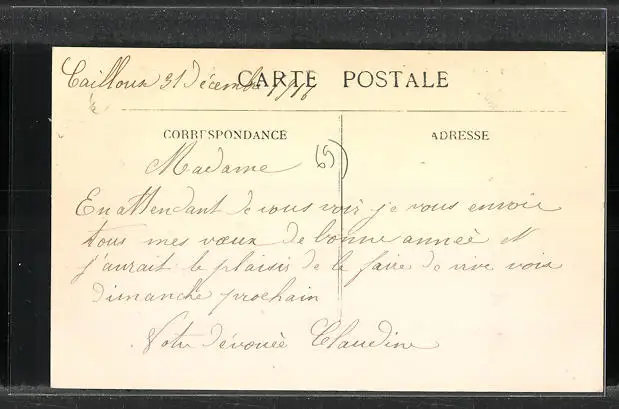 Cailloux 31 Décembre 1916 CARTE POSTALE
CORRESPONDANCE ADRESSE
Madame 69)
En attendant de vous voir je vous envoie
tous mes vœux de bonne année et
j'aurait le plaisir de le faire de vive voix
dimanche prochain
Votre dévouée Claudine